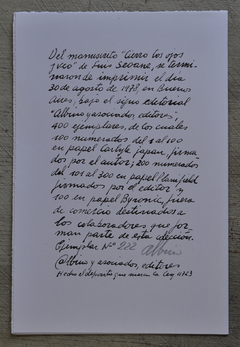 Del manuscrito "Cierro los ojos
y veo" de Luis Seoane, se termi-
naron de imprimir el día
30 de agosto de 1978, en Buenos
Aires, bajo el signo editorial
"Albino y asociados, editores",
400 ejemplares, de los cuales
100 numerados del 1 al 100
en papel Carlyle Japan, firma-
dos por el autor; 200 numerados
del 101 al 300 en papel
firmados por el editor y
100 en papel Byronic, fuera
de comercio destinados a
los colaboradores que for-
man parte de esta edición.
Ejemplar Nº 222 Albino
Albino y asociados, editores
Hecho el depósito que marca la ley 11723